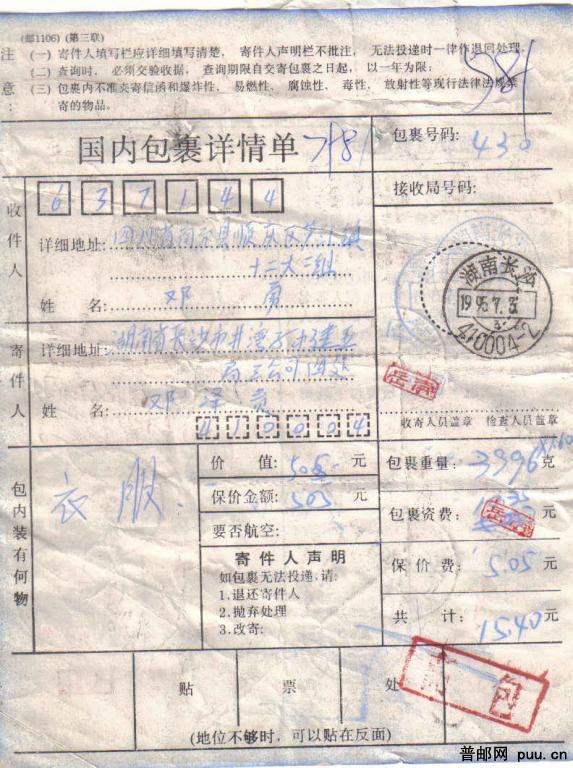 (邮1106) (第三联)
注 (一) 寄件人填写栏应详细填写清楚, 寄件人声明栏不批注, 无法投递时一律作退回处理。
(二) 查询时, 必须交验收据, 查询期限自交寄包裹之日起, 以一年为限。
意: (三) 包裹内不准夹寄信函和爆炸性, 易燃性, 腐蚀性, 毒性, 放射性等现行法律法规禁
寄的物品。
国内包裹详情单
包裹号码: 430
接收局号码:
收件人
637144
详细地址: 四川省南充县顺庆区芦溪镇
十二大三组
姓 名: 邓 勇
湖南长沙
1995.7.3
410004-2
寄件人
详细地址: 湖南省长沙市井湾子
姓 名: 邓泽
410004
岳清
收寄人员盖章 检查人员盖章
包内装有何物
衣服
价 值: 505 元
保价金额: 505 元
要否航空:
寄件人声明
如包裹无法投递, 请:
1.退还寄件人
2.抛弃处理
3.改寄:
包裹重量: 3396 克
包裹资费: 元
岳清
保 价 费: 5.05 元
共 计: 15.40 元
贴 票 处
(地位不够时, 可以贴在反面)
普邮网 puu.cn